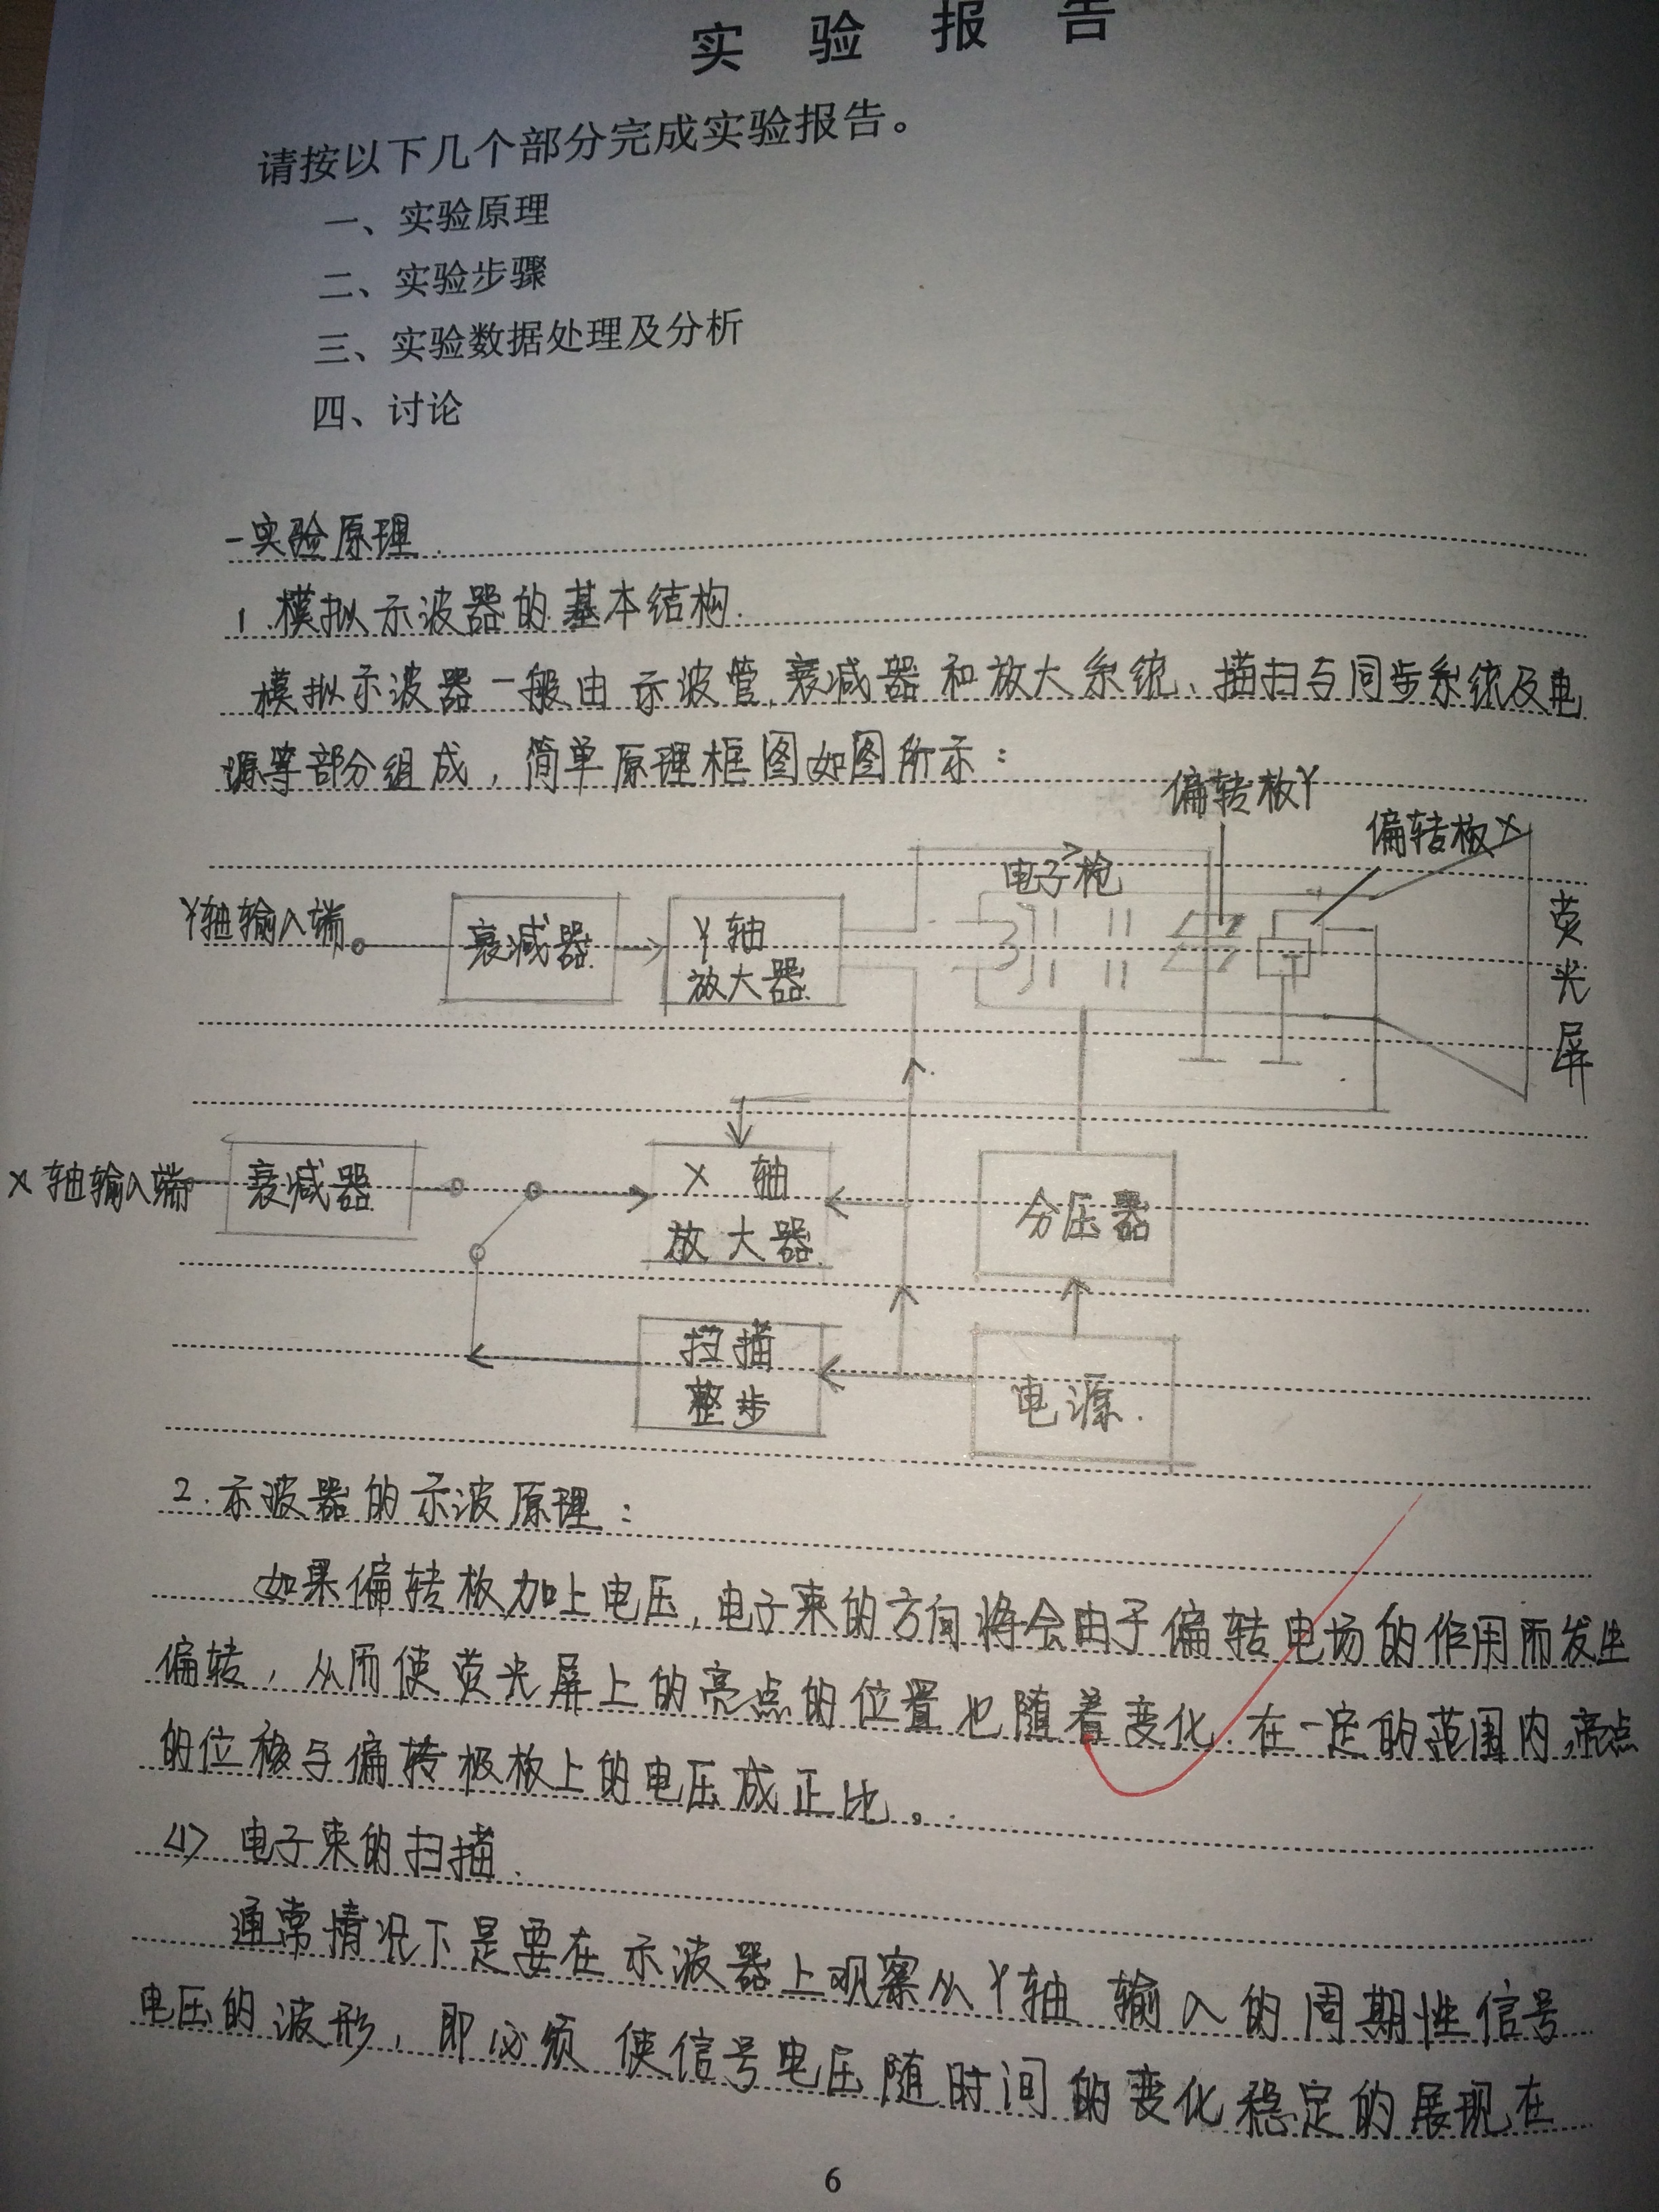 实验报告
请按以下几个部分完成实验报告。
一、实验原理
二、实验步骤
三、实验数据处理及分析
四、讨论
一实验原理.
1.模拟示波器的基本结构.
模拟示波器一般由示波管、衰减器和放大系统、描扫与同步系统及电
源等部分组成，简单原理框图如图所示：
偏转板Y
偏转板X
电子枪
荧光屏
Y轴输入端
衰减器
Y轴
放大器
X轴输入端
衰减器
X轴
放大器
分压器
扫描
整步
电源.
2.示波器的示波原理：
如果偏转板加上电压,电子束的方向将会由于偏转电场的作用而发生
偏转，从而使荧光屏上的亮点的位置也随着变化.在一定的范围内,亮点
的位移与偏转极板上的电压成正比。
<1>电子束的扫描.
通常情况下是要在示波器上观察从Y轴输入的周期性信号
电压的波形，即必须使信号电压随时间的变化稳定的展现在
6